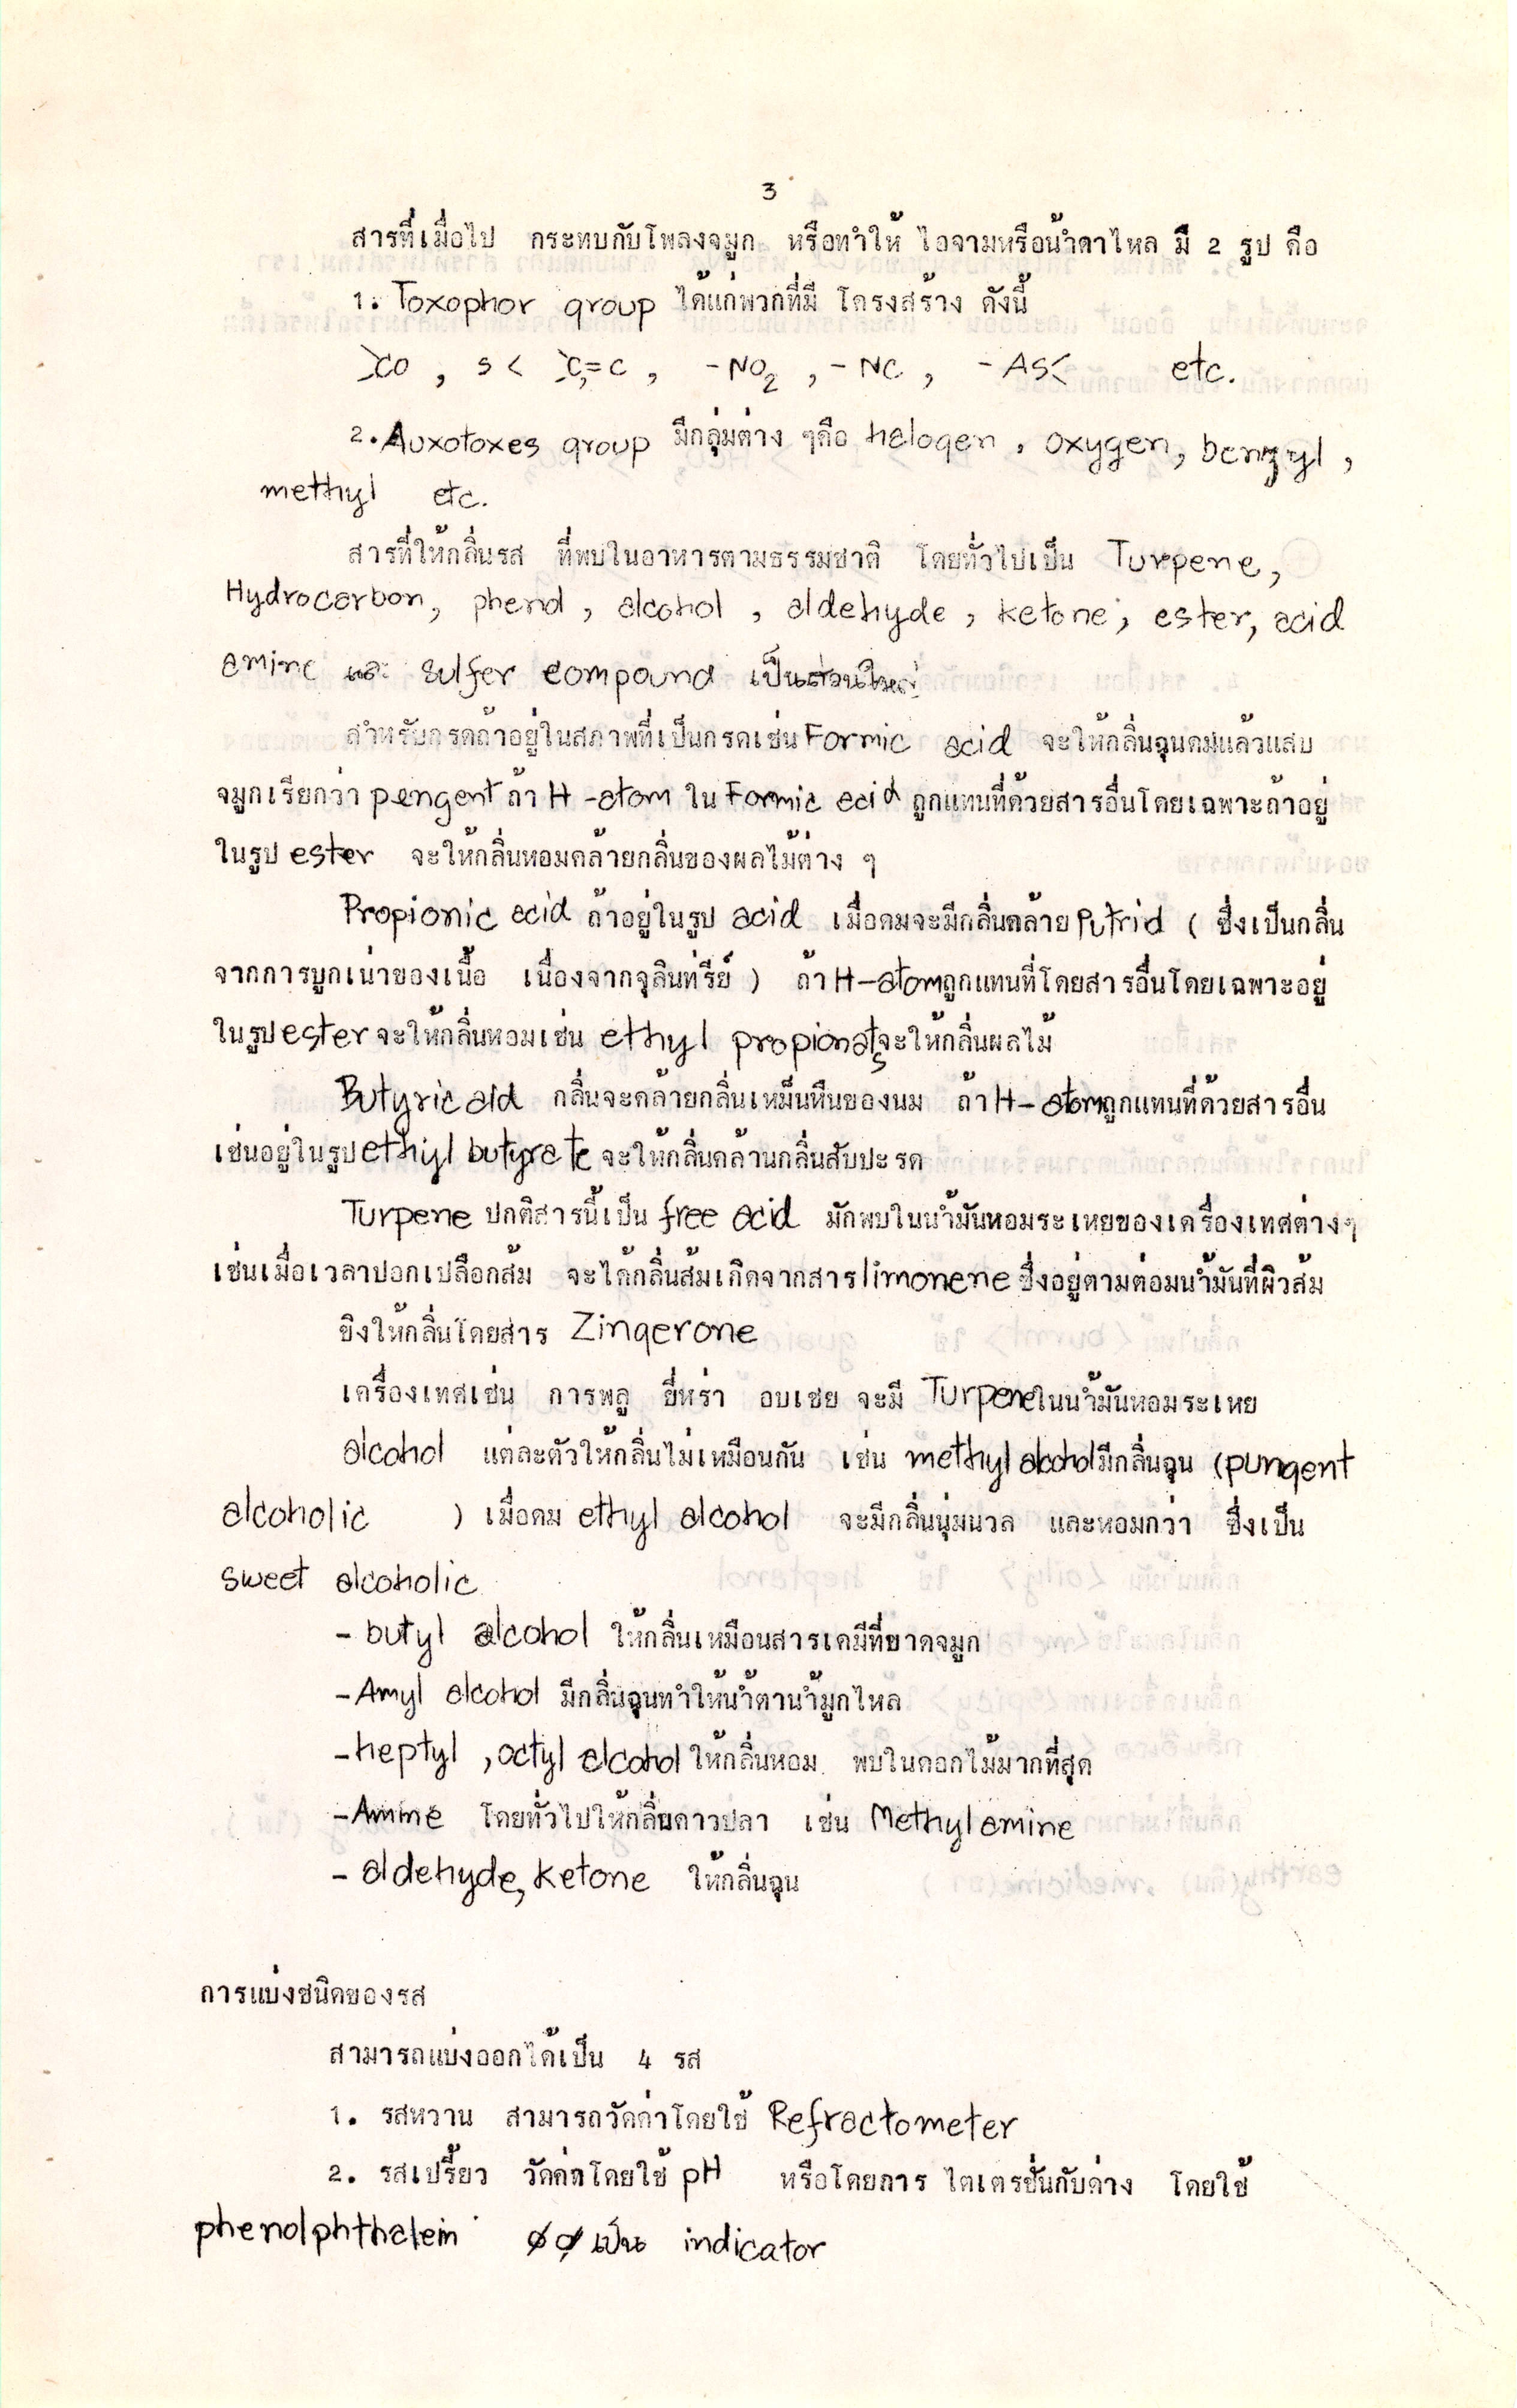 3
สารที่เมื่อไป กระทบกับโพลงจมูก หรือทำให้ ไอจามหรือน้ำตาไหล มี 2 รูป คือ
1. Toxophor group ได้แก่พวกที่มี โครงสร้าง ดังนี้
>co , s < >c=c , -NO2 , - NC , - AS< etc.
2. Auxotoxes group มีกลุ่มต่าง ๆคือ halogen , oxygen, benzyl ,
methyl etc.
สารที่ให้กลิ่นรส ที่พบในอาหารตามธรรมชาติ โดยทั่วไปเป็น Turpene,
Hydrocarbon, phenol , alcohol , aldehyde , ketone , ester, acid
amine และ sulfer compound เป็นส่วนใหญ่
สำหรับกรดถ้าอยู่ในสภาพที่เป็นกรดเช่น Formic acid จะให้กลิ่นฉุนดมแล้วแสบ
จมูกเรียกว่า pengent ถ้า H -atom ใน Formic acid ถูกแทนที่ด้วยสารอื่นโดยเฉพาะถ้าอยู่
ในรูป ester จะให้กลิ่นหอมคล้ายกลิ่นของผลไม้ต่าง ๆ
Propionic acid ถ้าอยู่ในรูป acid เมื่อดมจะมีกลิ่นคล้าย Putrid ( ซึ่งเป็นกลิ่น
จากการบูกเน่าของเนื้อ เนื่องจากจุลินทรีย์ ) ถ้า H-atomถูกแทนที่โดยสารอื่นโดยเฉพาะอยู่
ในรูป ester จะให้กลิ่นหอมเช่น ethyl propionateจะให้กลิ่นผลไม้
Butyric aid กลิ่นจะคล้ายกลิ่นเหม็นหืนของนม ถ้า H- atomถูกแทนที่ด้วยสารอื่น
เช่นอยู่ในรูป ethyl butyrate จะให้กลิ่นคล้านกลิ่นสับปะรด
Turpene ปกติสารนี้เป็น free acid มักพบในน้ำมันหอมระเหยของเครื่องเทศต่างๆ
เช่นเมื่อเวลาปอกเปลือกส้ม จะได้กลิ่นส้มเกิดจากสาร limonene ซึ่งอยู่ตามต่อมน้ำมันที่ผิวส้ม
ขิงให้กลิ่นโดยสาร Zingerone
เครื่องเทศเช่น การพลู ยี่หร่า อบเชย จะมี Turpeneในน้ำมันหอมระเหย
alcohol แต่ละตัวให้กลิ่นไม่เหมือนกัน เช่น methyl alcoholมีกลิ่นฉุน (pungent
alcoholic ) เมื่อดม ethyl alcohol จะมีกลิ่นนุ่มนวล และหอมกว่า ซึ่งเป็น
sweet alcoholic
- butyl alcohol ให้กลิ่นเหมือนสารเคมีที่บาดจมูก
-Amyl alcohol มีกลิ่นฉุนทำให้น้ำตาน้ำมูกไหล
-heptyl , octyl alcohol ให้กลิ่นหอม พบในดอกไม้มากที่สุด
-Amine โดยทั่วไปให้กลิ่นคาวปลา เช่น Methyl amine
- aldehyde, ketone ให้กลิ่นฉุน
การแบ่งชนิดของรส
สามารถแบ่งออกได้เป็น 4 รส
1. รสหวาน สามารถวัดค่าโดยใช้ Refractometer
2. รสเปรี้ยว วัดค่าโดยใช้ pH หรือโดยการ ไตเตรชั่นกับด่าง โดยใช้
phenolphthalein เป็น indicator